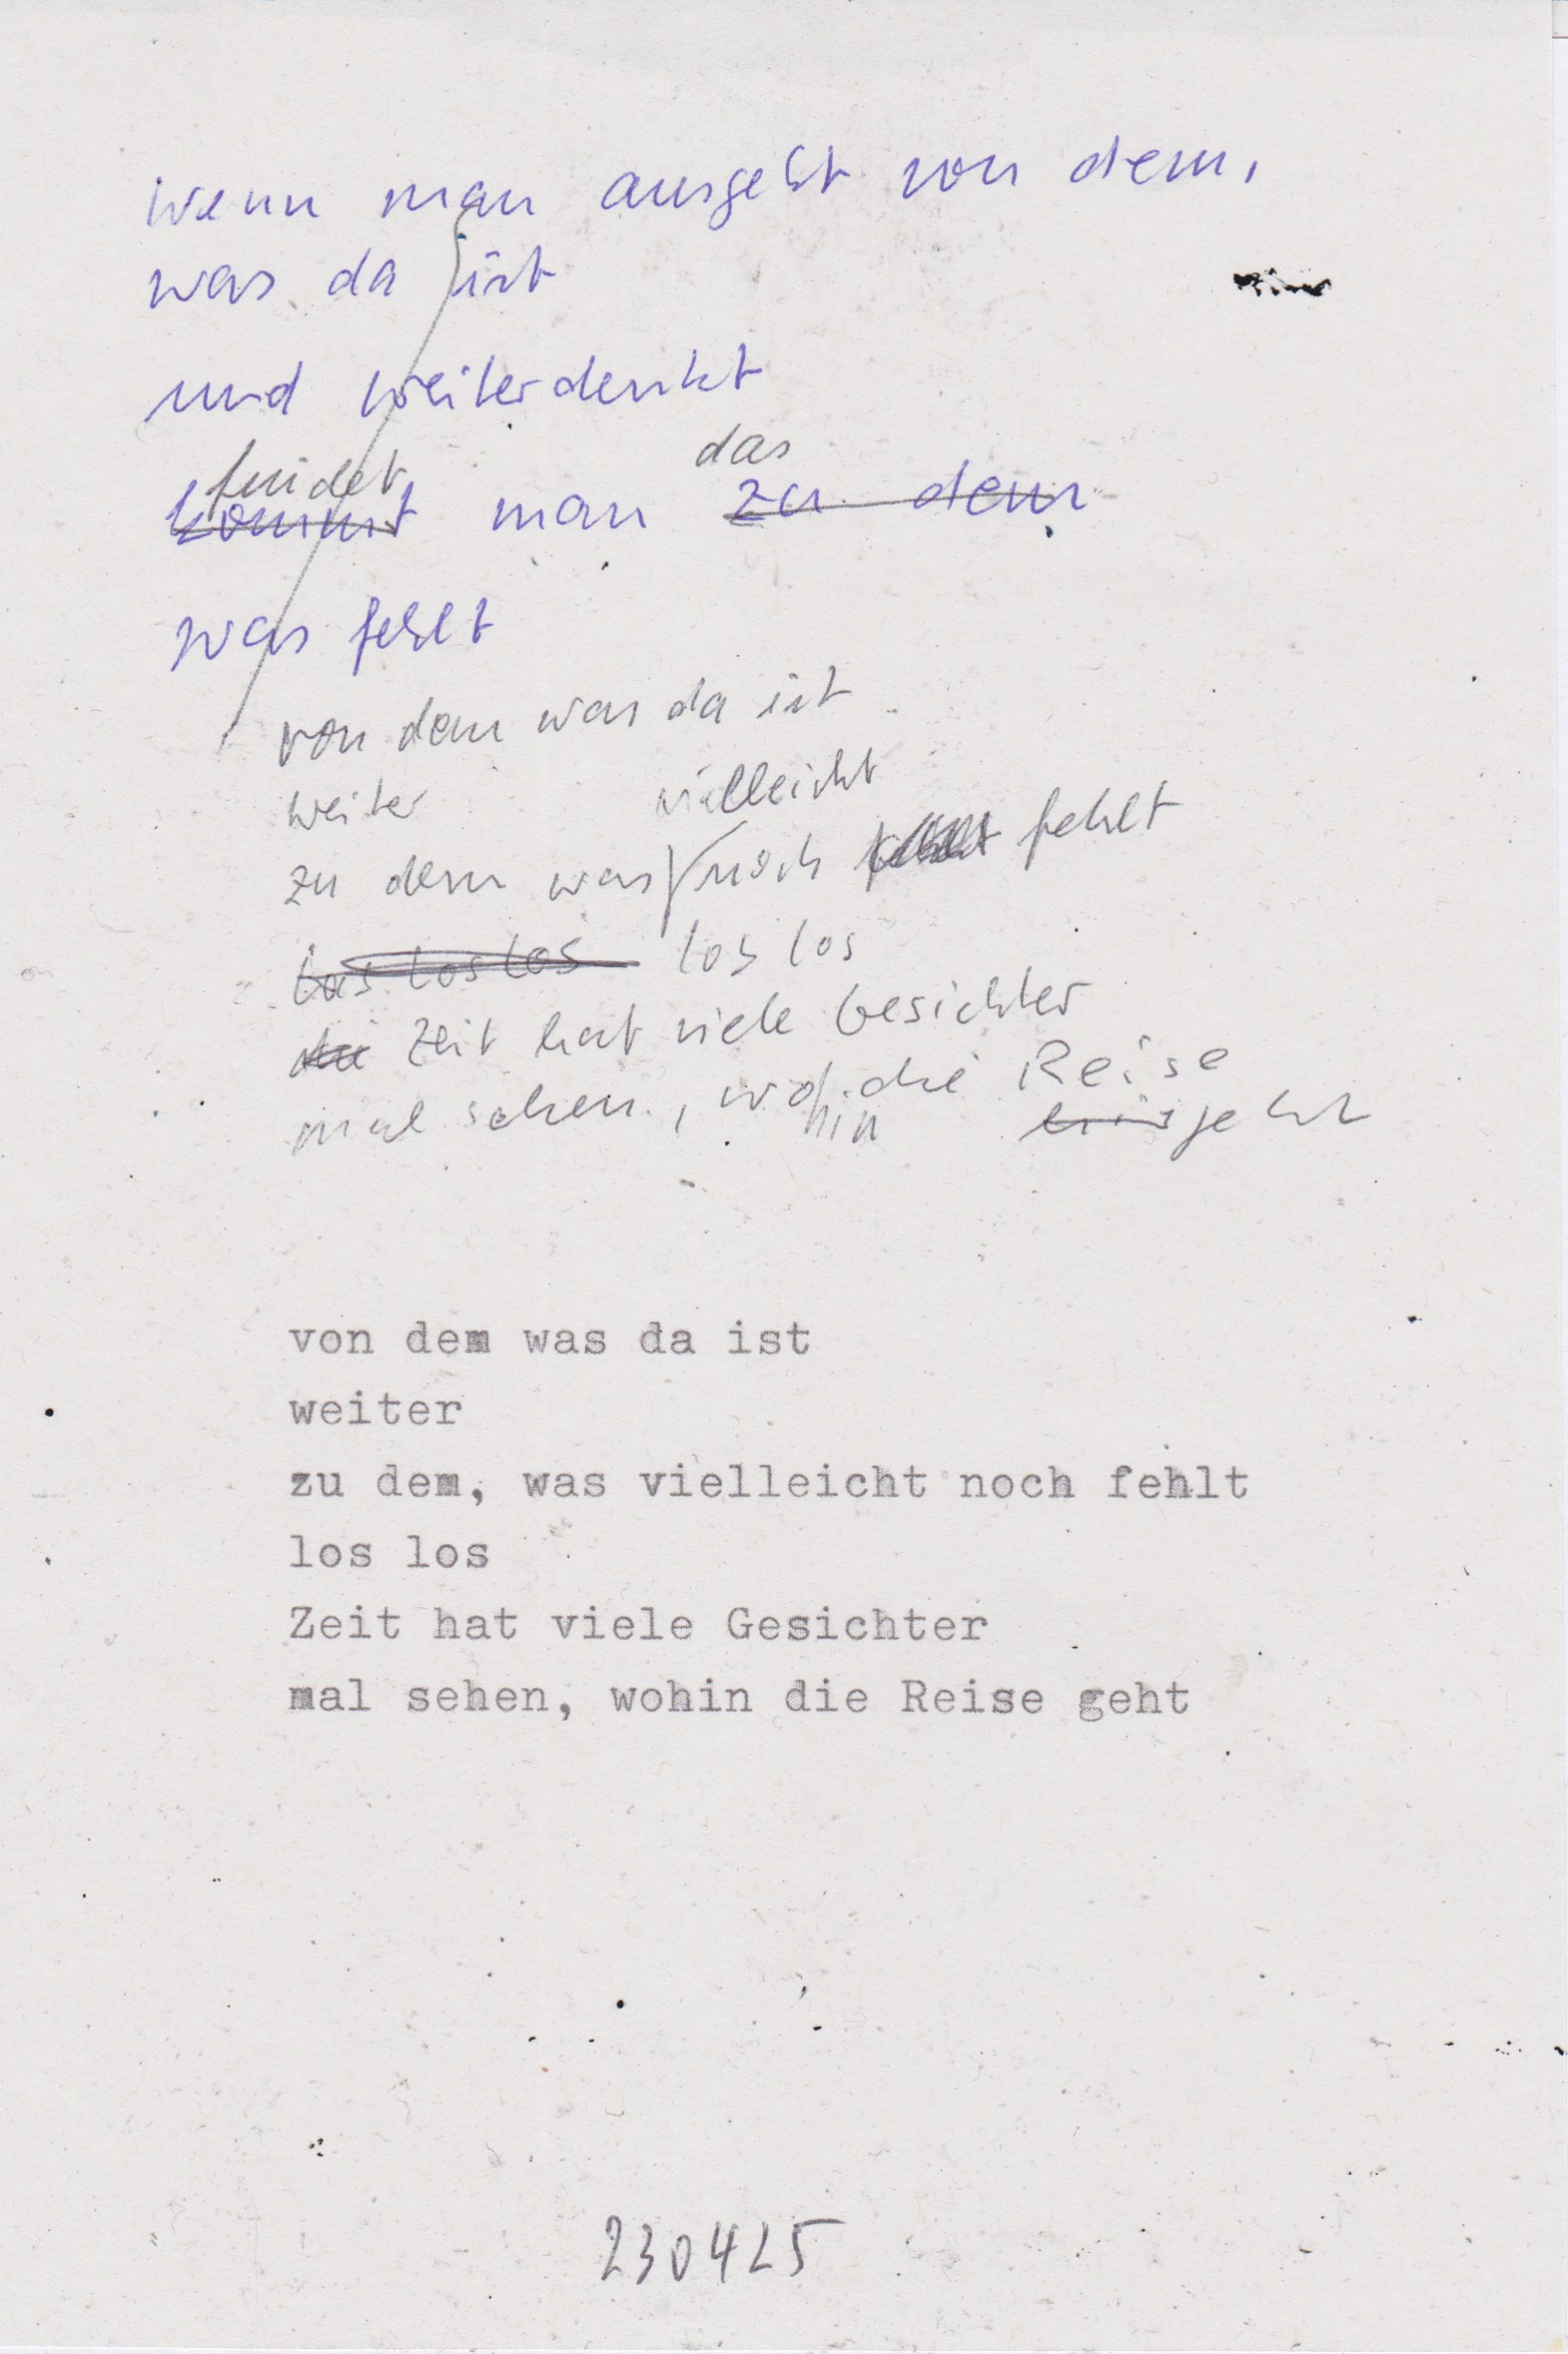 wenn man ausgeht von dem,
was da ist
und weiterdenkt
findet das
kommt man zu dem
was fehlt
von dem was da ist
weiter
vielleicht
zu dem was noch fehlt
los los los los los
die Zeit hat viele Gesichter
mal sehen, wo die Reise
hin geht
von dem was da ist
weiter
zu dem, was vielleicht noch fehlt
los los
Zeit hat viele Gesichter
mal sehen, wohin die Reise geht
230425